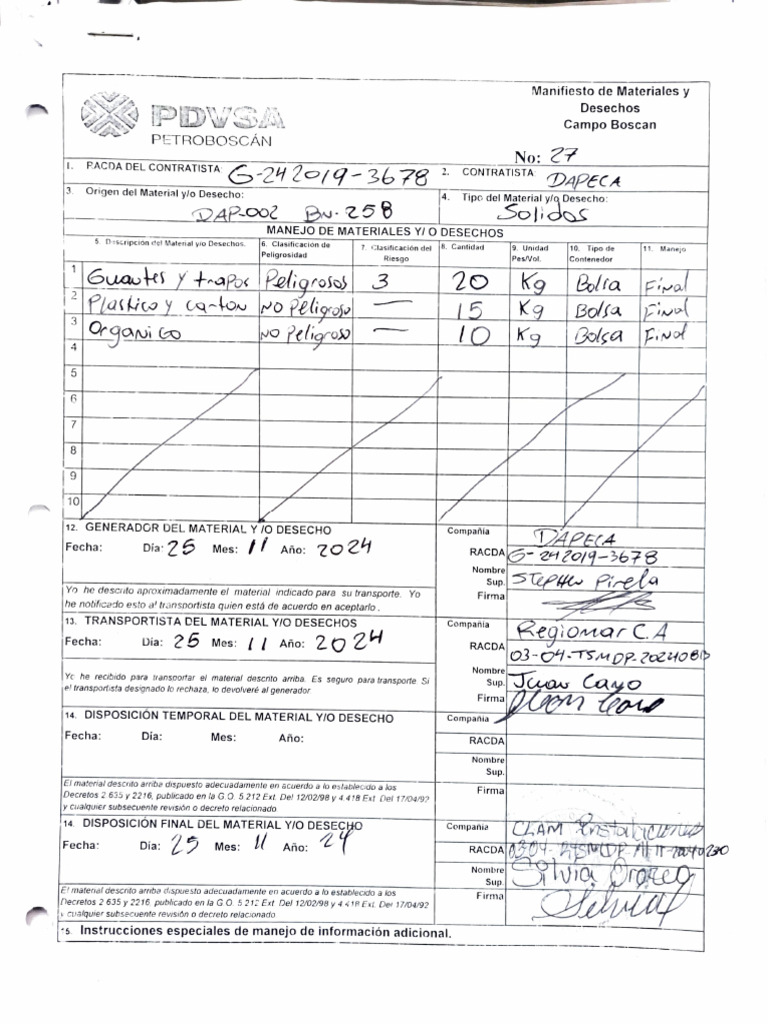 Manifiesto de Materiales y
Desechos
Campo Boscan
PDVSA
PETROBOSCÁN
No: 27
1. RACDA DEL CONTRATISTA: G-242019-3678
2. CONTRATISTA: DAPECA
3. Origen del Material y/o Desecho:
DAP-002 BN-258
4. Tipo del Material y/o Desecho:
Solidos
MANEJO DE MATERIALES Y/O DESECHOS
5. Descripción del Material y/o Desechos. 6. Clasificación de Peligrosidad 7. Clasificación del Riesgo 8. Cantidad 9. Unidad Pes/Vol. 10. Tipo de Contenedor 11. Manejo
1 Guantes y trapos Peligrosos 3 20 Kg Bolsa Final
2 Plastico y carton NO Peligroso — 15 Kg Bolsa Final
3 Organico NO Peligroso — 10 Kg Bolsa Final
4
5
6
7
8
9
10
12. GENERADOR DEL MATERIAL Y /O DESECHO
Fecha: Día: 25 Mes: 11 Año: 2024
Compañía DAPECA
RACDA G-242019-3678
Nombre Sup. Stephen Pirela
Firma
Yo he descrito aproximadamente el material indicado para su transporte. Yo
he notificado esto al transportista quien está de acuerdo en aceptarlo.
13. TRANSPORTISTA DEL MATERIAL Y/O DESECHOS
Fecha: Día: 25 Mes: 11 Año: 2024
Compañía Regiomar C.A
RACDA 03-04-TSMDP-202408
Nombre Sup. Juan Cayo
Firma
Yo he recibido para transportar el material descrito arriba. Es seguro para transporte. Si
el transportista designado lo rechaza, lo devolveré al generador.
14. DISPOSICIÓN TEMPORAL DEL MATERIAL Y/O DESECHO
Fecha: Día: Mes: Año:
Compañía
RACDA
Nombre
Sup.
Firma
El material descrito arriba dispuesto adecuadamente en acuerdo a lo establecido a los
Decretos 2.635 y 2216, publicado en la G.O. 5.212 Ext. Del 12/02/98 y 4.418 Ext. Del 17/04/92
y cualquier subsecuente revisión o decreto relacionado.
14. DISPOSICIÓN FINAL DEL MATERIAL Y/O DESECHO
Fecha: Día: 25 Mes: 11 Año: 24
Compañía CLAM
RACDA
Nombre Sup. Silvia Orozco
Firma Silvia
El material descrito arriba dispuesto adecuadamente en acuerdo a lo establecido a los
Decretos 2.635 y 2216, publicado en la G.O. 5.212 Ext. Del 12/02/98 y 4.418 Ext. Del 17/04/92
y cualquier subsecuente revisión o decreto relacionado.
15. Instrucciones especiales de manejo de información adicional.